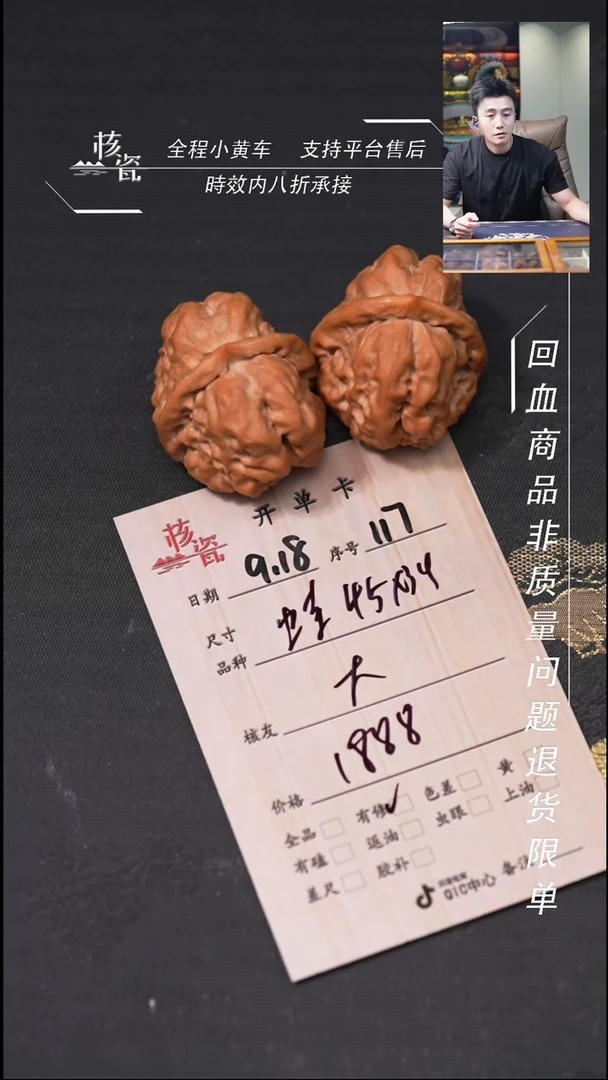 核瓷
全程小黄车 支持平台售后
時效内八折承接
回血商品非质量问题退货限单
开单卡
核瓷
日期 9.18 序号 117
尺寸
品种 蛙 45
核友
价格 1888
全品 有修 色差 黄
有磕 返油 虫眼 上油
差尺 胶补
QIC中心